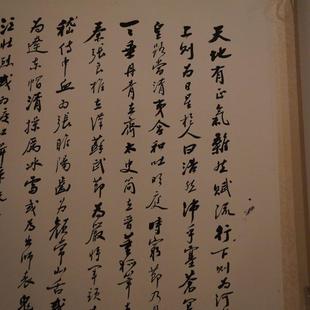 天地有正氣雜然賦流行下則為河
上則為日星於人曰浩然沛乎塞蒼冥
皇路當清夷含和吐明庭時窮節乃
一一垂丹青在齊太史簡在晉董狐筆
秦張良椎在漢蘇武節為嚴將軍頭
嵇侍中血為張睢陽齒為顏常山舌或
為遼東帽清操厲冰雪或為出師表鬼
泣壯烈或為渡江